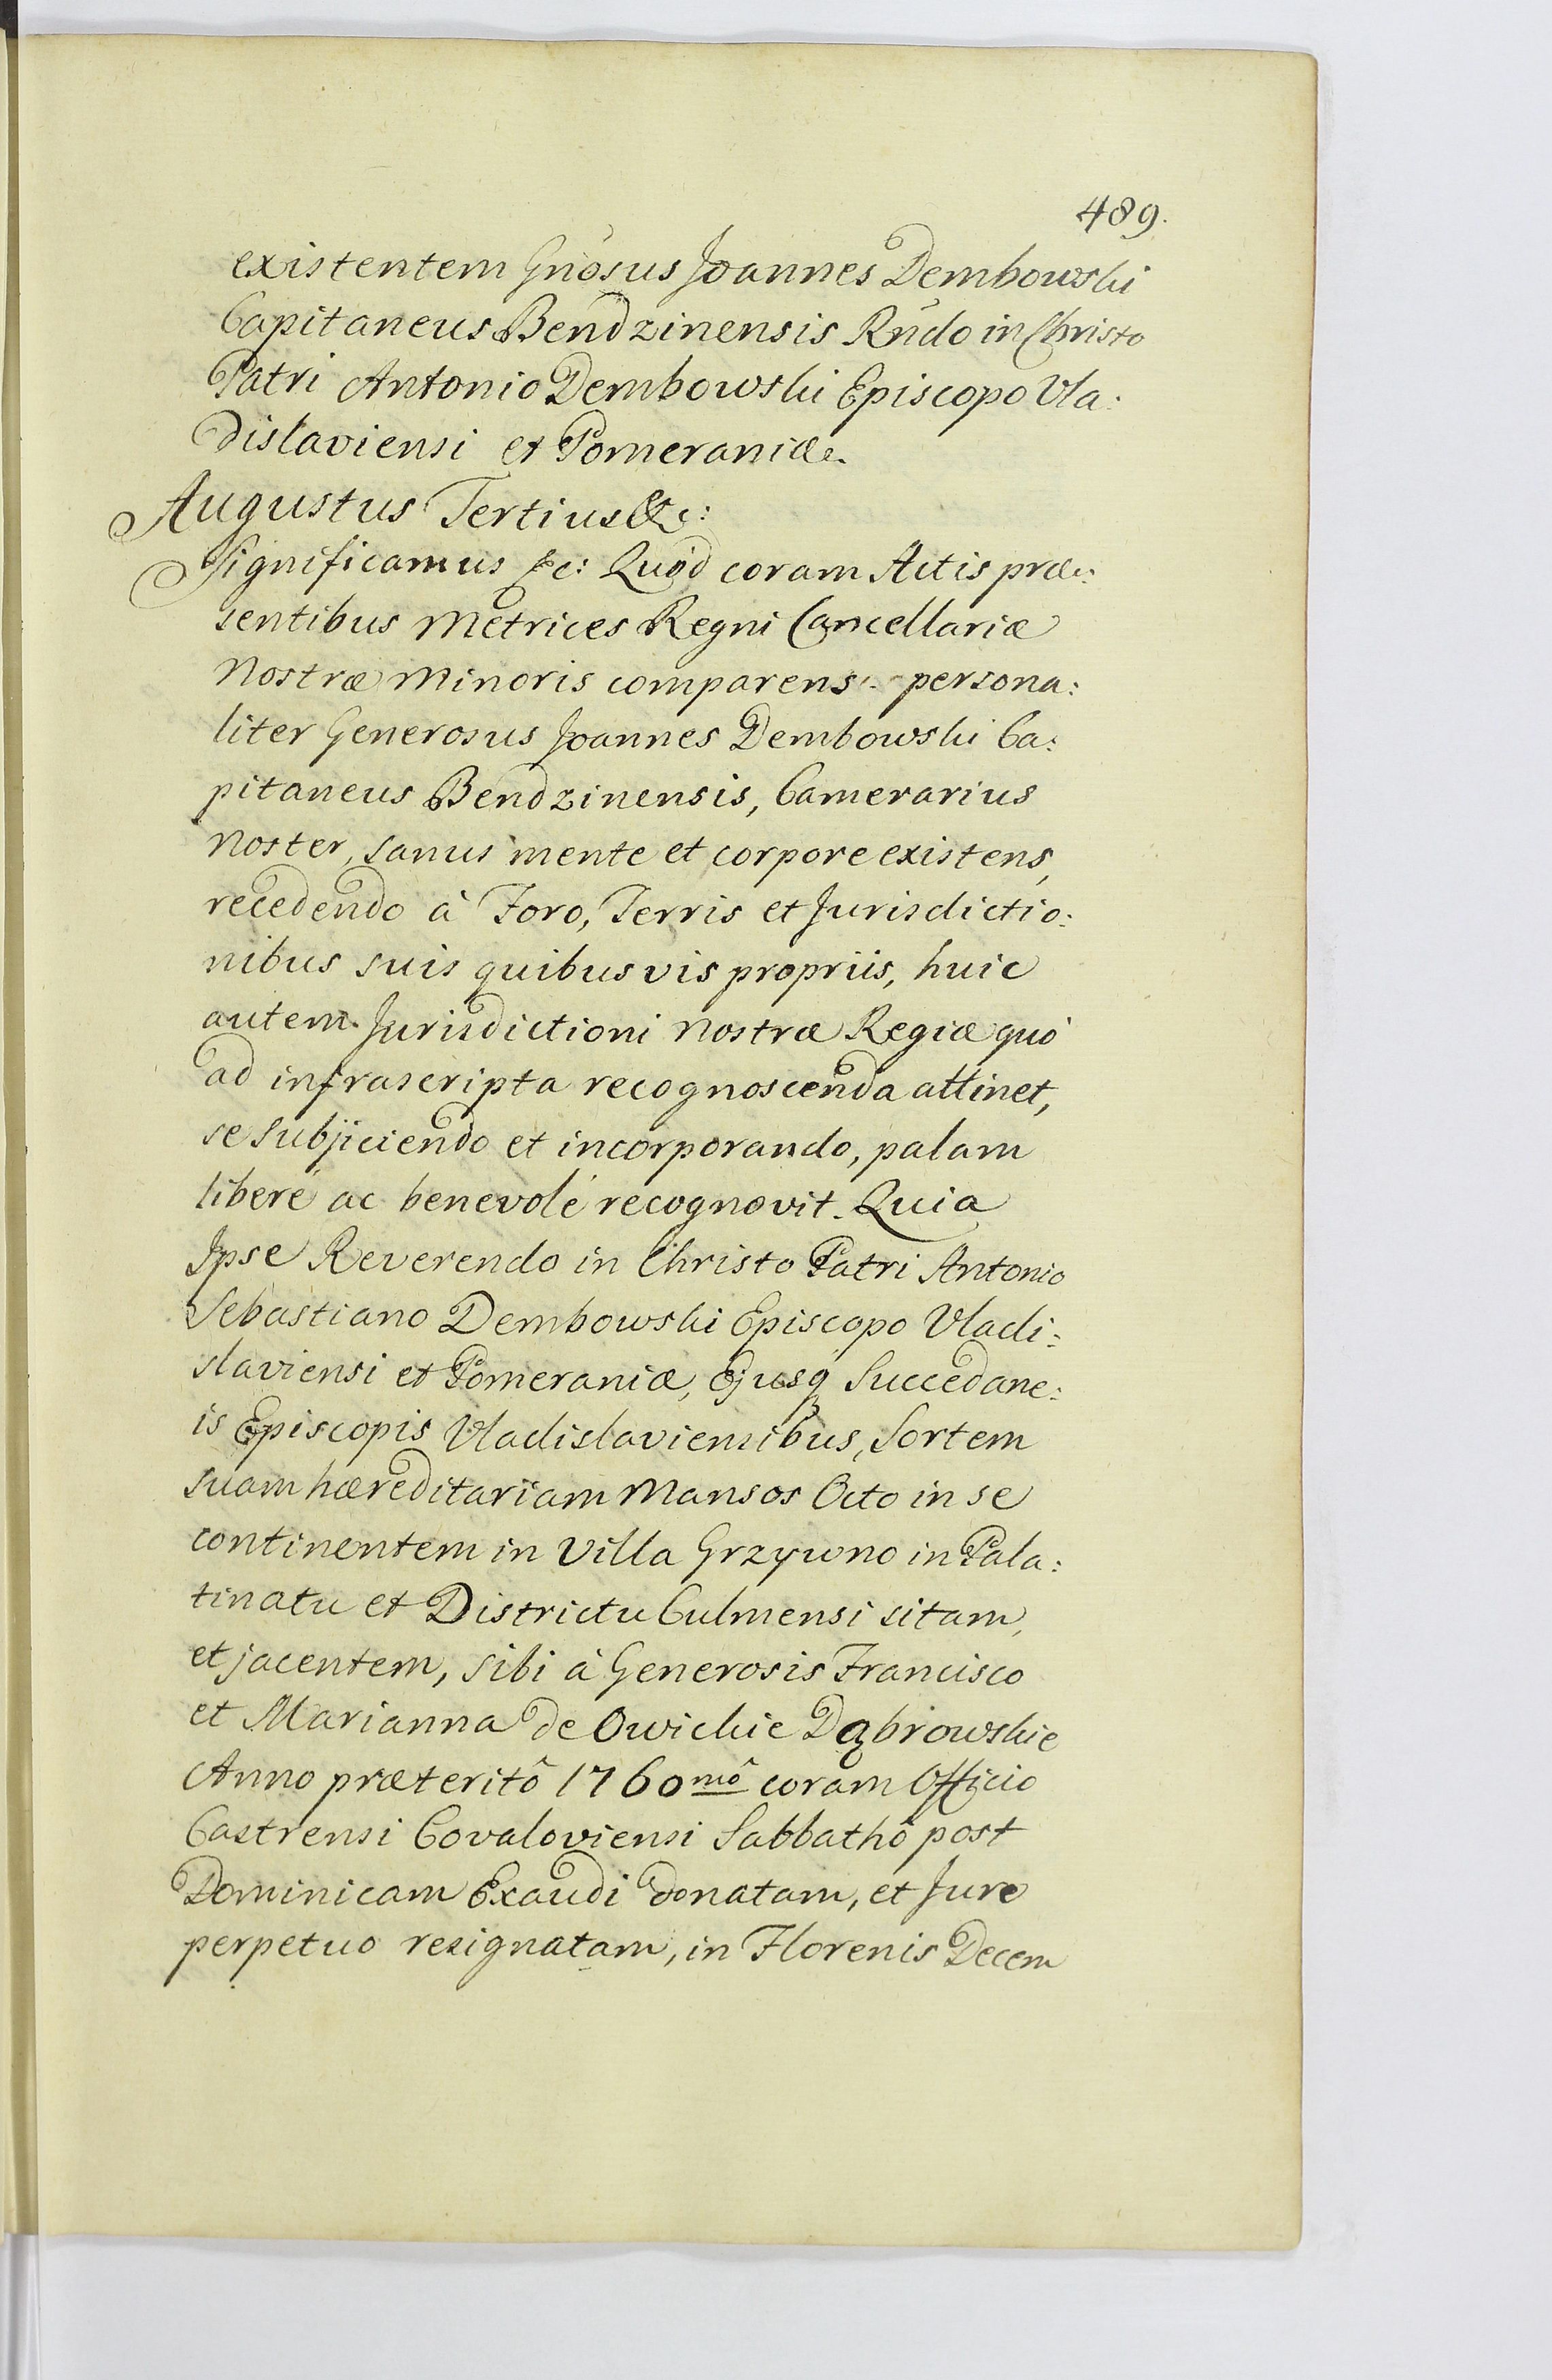 489.
existentem Gnosus Joannes Dembowski
Capitaneus Bendzinensis Rndo in Christo
Patri Antonio Dembowski Episcopo Vla:
dislaviensi et Pomeraniæ.
Augustus Tertius &c:
Significamus &c: Quòd coram Actis præ:
sentibus Metrices Regni Cancellariæ
Nostræ Minoris comparens persona:
liter Generosus Joannes Dembowski Ca:
pitaneus Bendzinensis, Camerarius
Noster, sanus mente et corpore existens,
recedendo à Foro, Terris et Jurisdictio:
nibus suis quibusvis propriis, huic
autem Jurisdictioni Nostræ Regiæ quò
ad infrascripta recognoscenda attinet,
se subjiciendo et incorporando, palam
liberé ac benevolé recognovit. Quia
Ipse Reverendo in Christo Patri Antonio
Sebastiano Dembowski Episcopo Vladi:
slaviensi et Pomeraniæ, Ejusq Succedane:
is Episcopis Vladislaviensibus, Sortem
suam hæreditariam Mansos Octo in se
continentem in Villa Grzywno in Pala:
tinatu et Districtu Culmensi sitam,
et jacentem, sibi à Generosis Francisco
et Marianna de Owickie Dąbrowskie
Anno præteritô 1760mô coram Officio
Castrensi Covaloviensi Sabbathô post
Dominicam Exaudi donatam, et Jure
perpetuo resignatam, in Florenis Decem